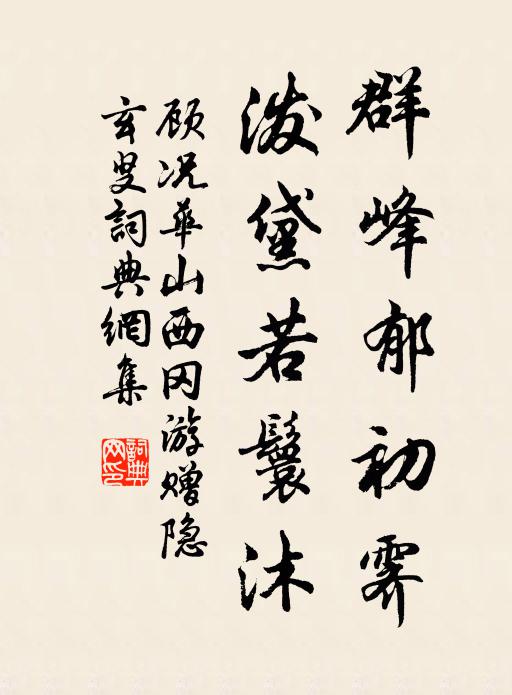 群峰郁初霁
泼黛若鬟沐
顾况华山西冈游赠隐
玄叟詞典網集
詞典网印